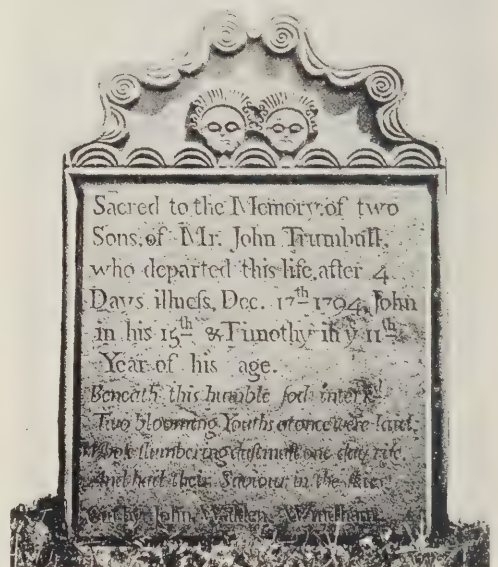 Sacred to the Memory of two
Sons, of Mr. John Trumbull,
who departed this life, after 4
Days illneſs, Dec. 17th 1794, John
in his 15th & Timothy in ye 11th
Year of his age.
Beneath this humble ſod interr'd
Two blooming Youths at once were laid,
Whoſe ſlumbering duſt muſt one day riſe,
And hail their Saviour in the ſkies
Cut by John Walden, Windham